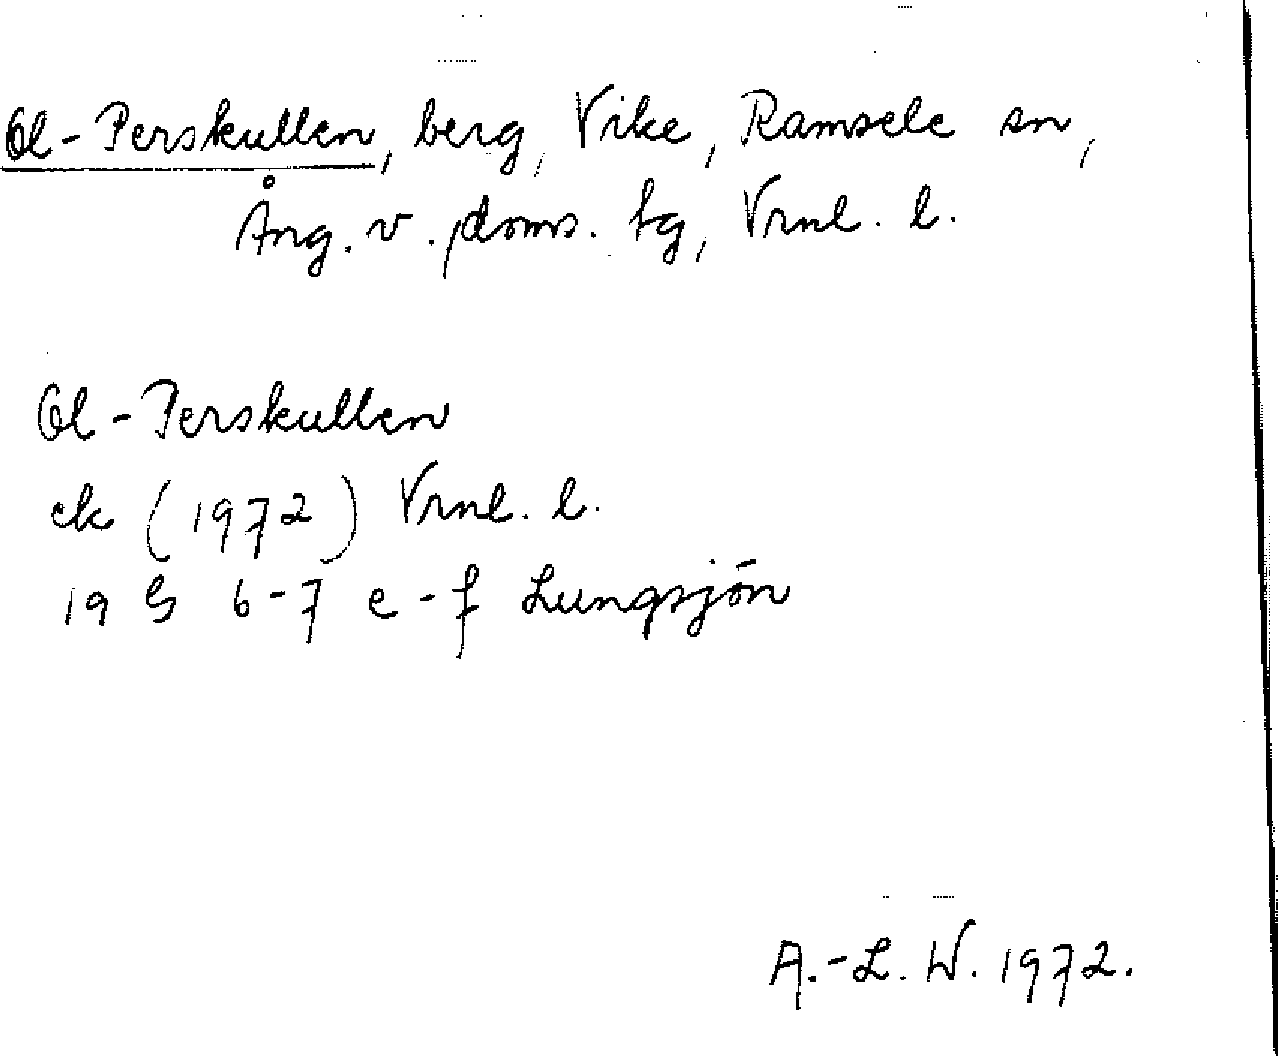 Ol-Perskullen, berg, Vike, Ramsele sn,
Ång. v. doms. tg, Vrnl. l.
Ol-Perskullen
ek (1972) Vrnl. l.
19 G 6-7 e-f Lungsjön
A.-L. W. 1972.